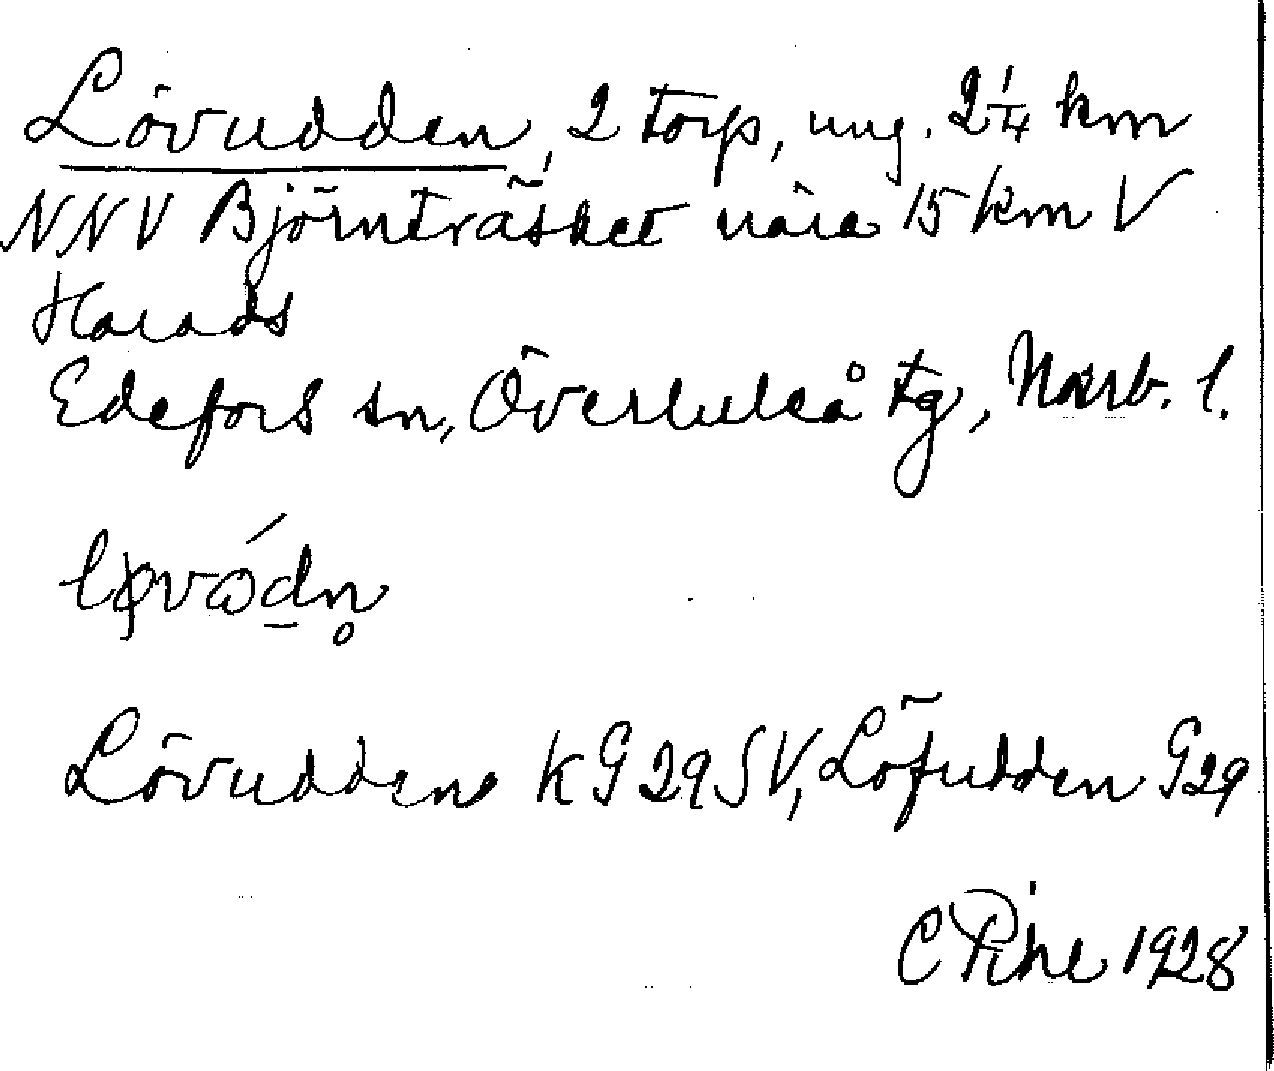 Lövudden, 2 torp, ung. 2 1/4 km
NNV Björnträsket nära 15 km V
Harads
Edefors sn, Överluleå tg, Norrb. l.
Lövudden KG29SV, Löfudden G29
C Pihl 1928